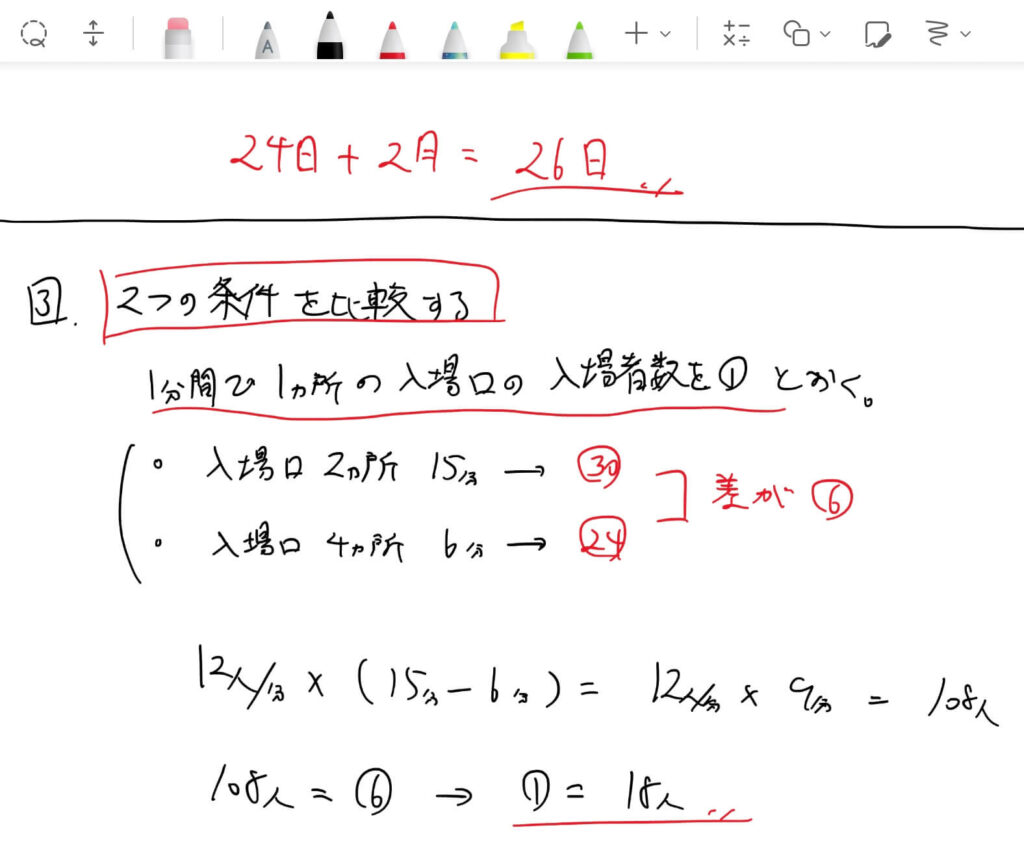 24日 + 2日 = 26日
3. 2つの条件を比較する
1分間で1ヵ所の入場口の入場者数を①とおく。
・ 入場口 2ヵ所 15分 → ㉚
差が⑥
・ 入場口 4ヵ所 6分 → ㉔
12人/分 × (15分 - 6分) = 12人/分 × 9分 = 108人
108人 = ⑥ → ① = 18人